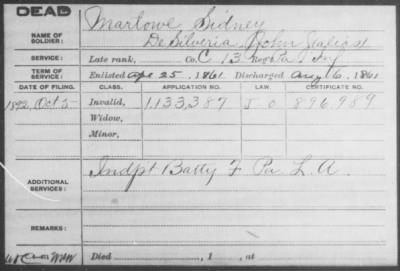 DEAD
NAME OF SOLDIER: Marlowe, Sidney
De Silveria, John (alias)
SERVICE: Late rank, Co. C, 13 Reg't Pa Inf
TERM OF SERVICE: Enlisted Apr 25, 1861. Discharged Aug 6, 1861
DATE OF FILING. CLASS. APPLICATION NO. LAW. CERTIFICATE NO.
1892, Oct 5 Invalid, 1,133,387 J O 896989
Widow,
Minor,
ADDITIONAL SERVICES: Indpt Batty F Pa. L. A.
REMARKS:
Died , 1 , at